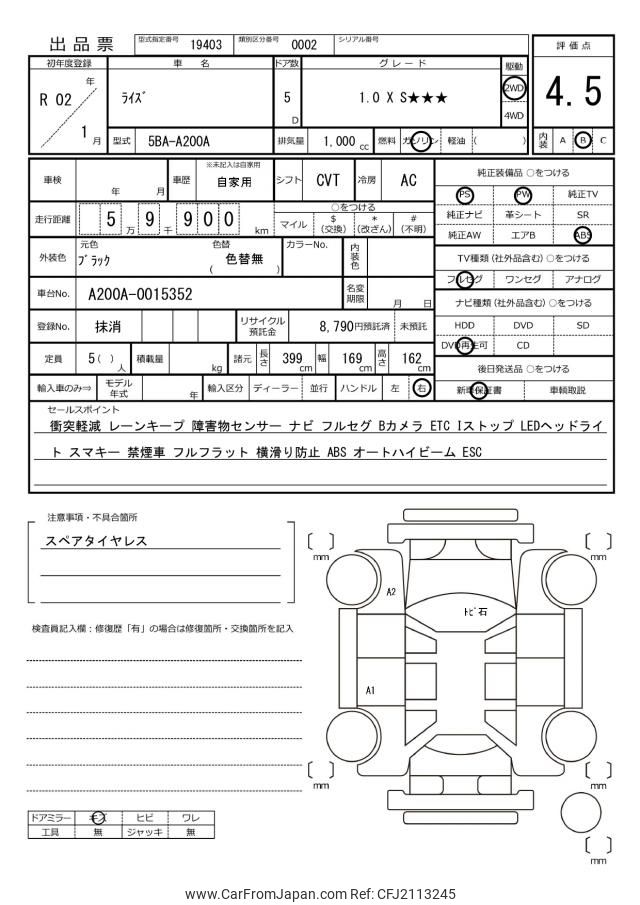 出品票 型式指定番号 19403 類別区分番号 0002 シリアル番号
評価点
4.5
内装 A B C
初年度登録 車名 ドア数 グレード 駆動
R 02 年 1 月 ﾗｲｽﾞ 5 D 1.0 X S★★★ 2WD 4WD
型式 5BA-A200A 排気量 1,000 cc 燃料 ガソリン 軽油 ( )
車検 年 月 車歴 ※未記入は自家用 自家用 シフト CVT 冷房 AC
走行距離 5 万 9 千 9 0 0 km ○をつける
マイル $ (交換) * (改ざん) # (不明)
外装色 元色 ﾌﾞﾗｯｸ 色替 ( 色替無 ) カラーNo. 内装色
車台No. A200A-0015352 名変期限 月 日
登録No. 抹消 リサイクル預託金 8,790円預託済 未預託
定員 5( ) 人 積載量 kg 諸元 長さ 399 cm 幅 169 cm 高さ 162 cm
輸入車のみ⇒ モデル年式 年 輸入区分 ディーラー 並行 ハンドル 左 右
純正装備品 ○をつける
PS PW 純正TV
純正ナビ 革シート SR
純正AW エアB ABS
TV種類 (社外品含む) ○をつける
フルセグ ワンセグ アナログ
ナビ種類 (社外品含む) ○をつける
HDD DVD SD
DVD再生可 CD
後日発送品 ○をつける
新車保証書 車輌取説
セールスポイント
衝突軽減 レーンキープ 障害物センサー ナビ フルセグ Bカメラ ETC Iストップ LEDヘッドライ
ト スマキー 禁煙車 フルフラット 横滑り防止 ABS オートハイビーム ESC
注意事項・不具合箇所
スペアタイヤレス
検査員記入欄：修復歴「有」の場合は修復箇所・交換箇所を記入
mm mm
A2
ﾄﾋﾞ石
A1
mm mm
mm
ドアミラー キズ ヒビ ワレ
工具 無 ジャッキ 無
www.CarFromJapan.com Ref: CFJ2113245